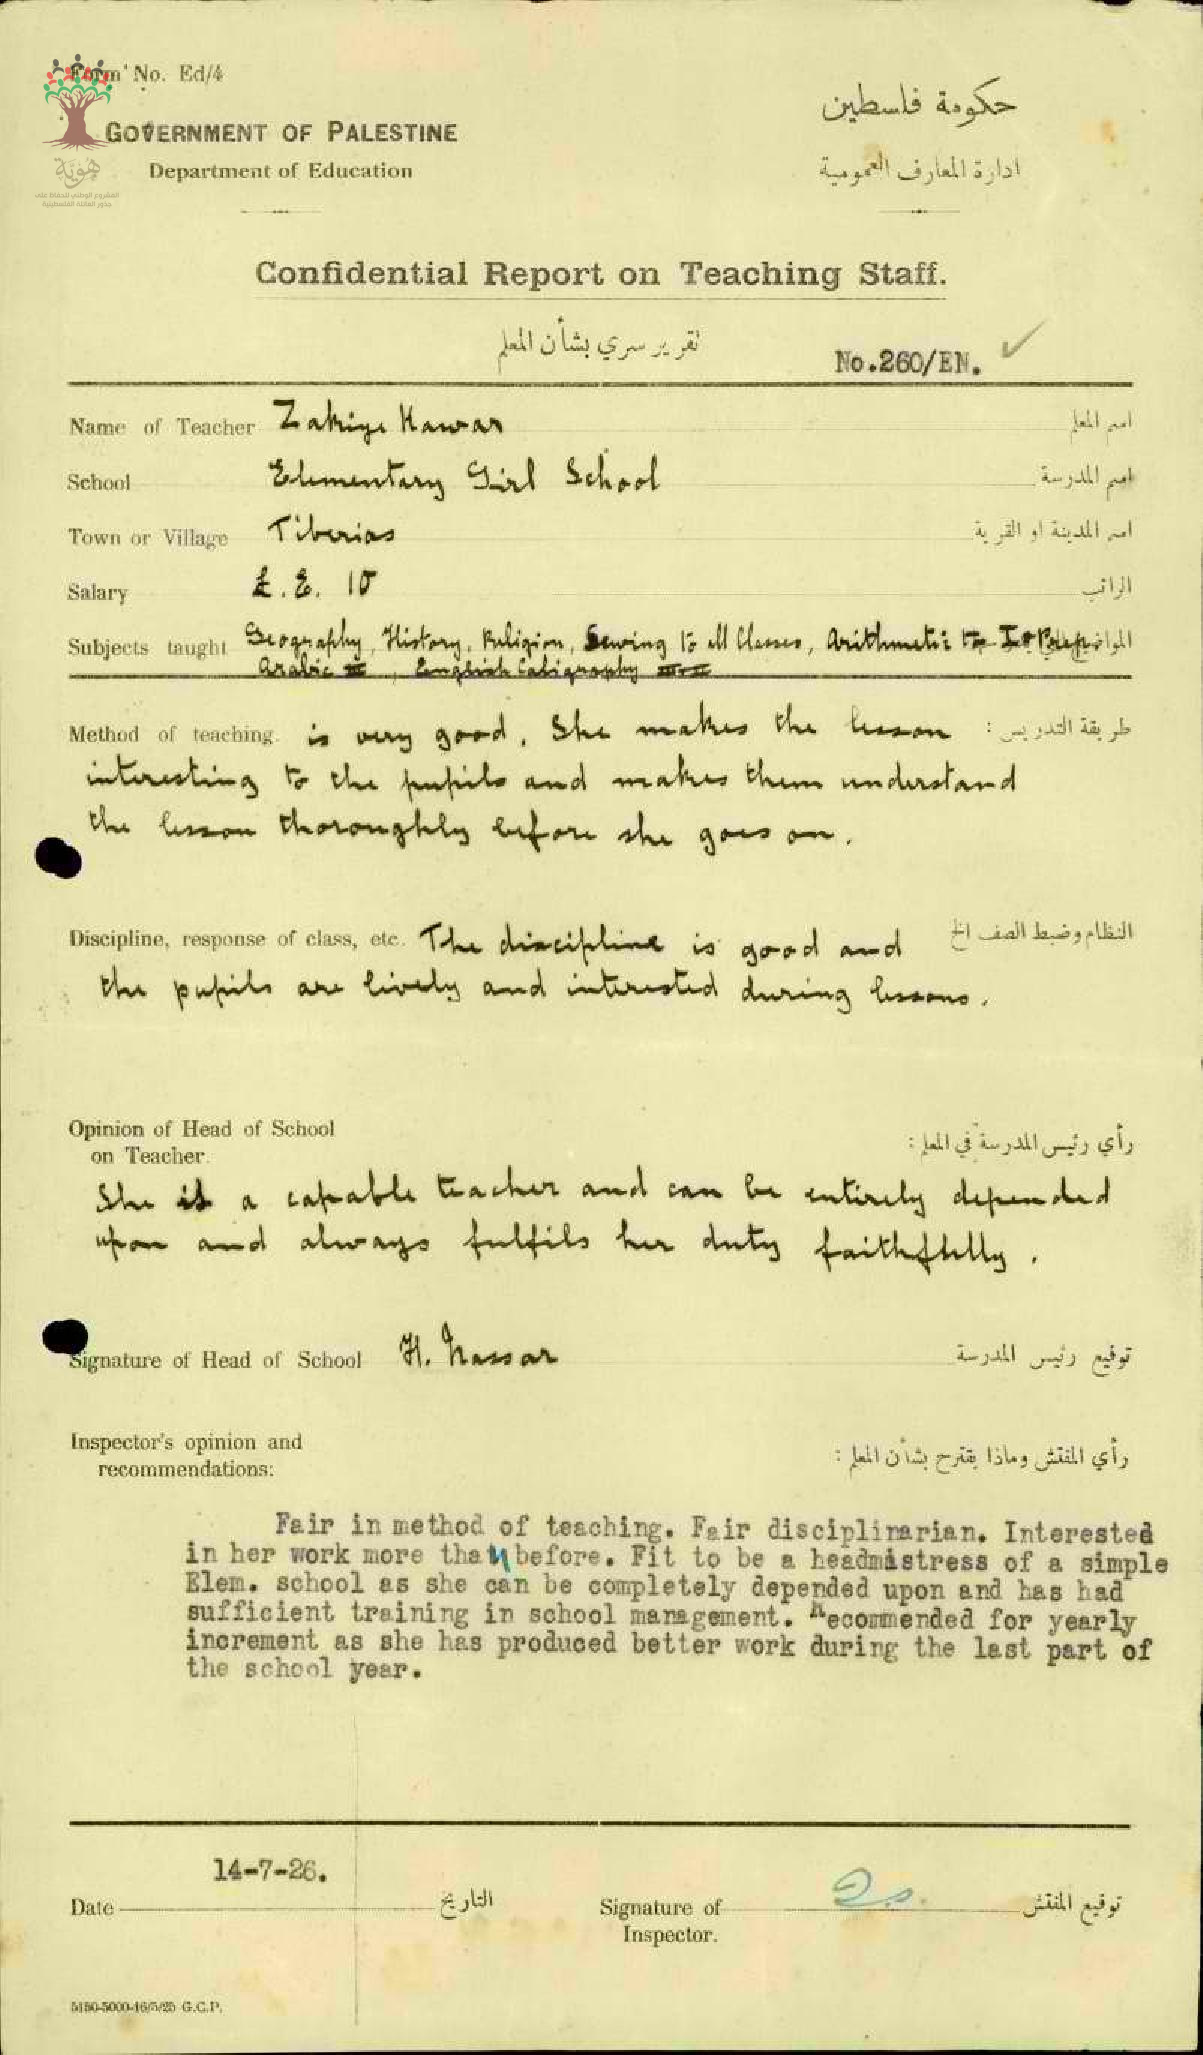 Form No. Ed/4
GOVERNMENT OF PALESTINE
Department of Education
حكومة فلسطين
ادارة المعارف العمومية
هوية
المشروع الوطني للحفاظ على
جذور العائلة الفلسطينية
Confidential Report on Teaching Staff.
تقرير سري بشأن المعلم
No.260/EN.
Name of Teacher Zakiye Kawar اسم المعلم
School Elementary Girl School اسم المدرسة
Town or Village Tiberias اسم المدينة او القرية
Salary £.E. 10 الراتب
Subjects taught Geography, History, Religion, Sewing to all Classes, Arithmetic to I
Arabic III, English Caligraphy
Method of teaching. is very good. She makes the lesson طريقة التدريس :
interesting to the pupils and makes them understand
the lesson thoroughly before she goes on.
Discipline, response of class, etc. The discipline is good and النظام وضبط الصف الخ
the pupils are lively and interested during lessons.
Opinion of Head of School رأي رئيس المدرسة في المعلم :
on Teacher.
She is a capable teacher and can be entirely depended
upon and always fulfils her duty faithfully.
Signature of Head of School H. Nassar توقيع رئيس المدرسة
Inspector's opinion and رأي المفتش وماذا يقترح بشأن المعلم :
recommendations:
Fair in method of teaching. Fair disciplinarian. Interested
in her work more than before. Fit to be a headmistress of a simple
Elem. school as she can be completely depended upon and has had
sufficient training in school management. Recommended for yearly
increment as she has produced better work during the last part of
the school year.
14-7-26.
Date التاريخ Signature of توقيع المفتش
Inspector.
5150-5000-16/5/25 G.C.P.